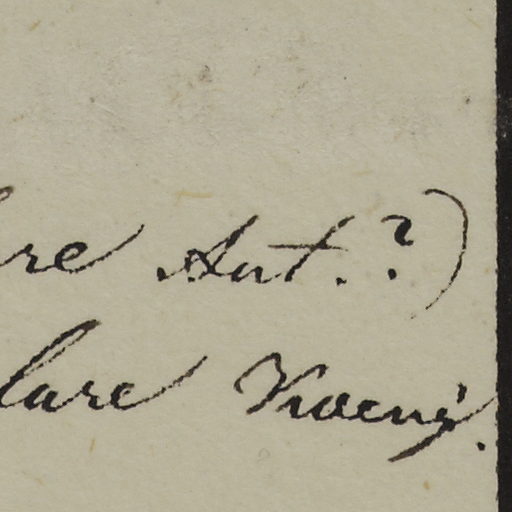 re Aut.?)
lare Koenig.